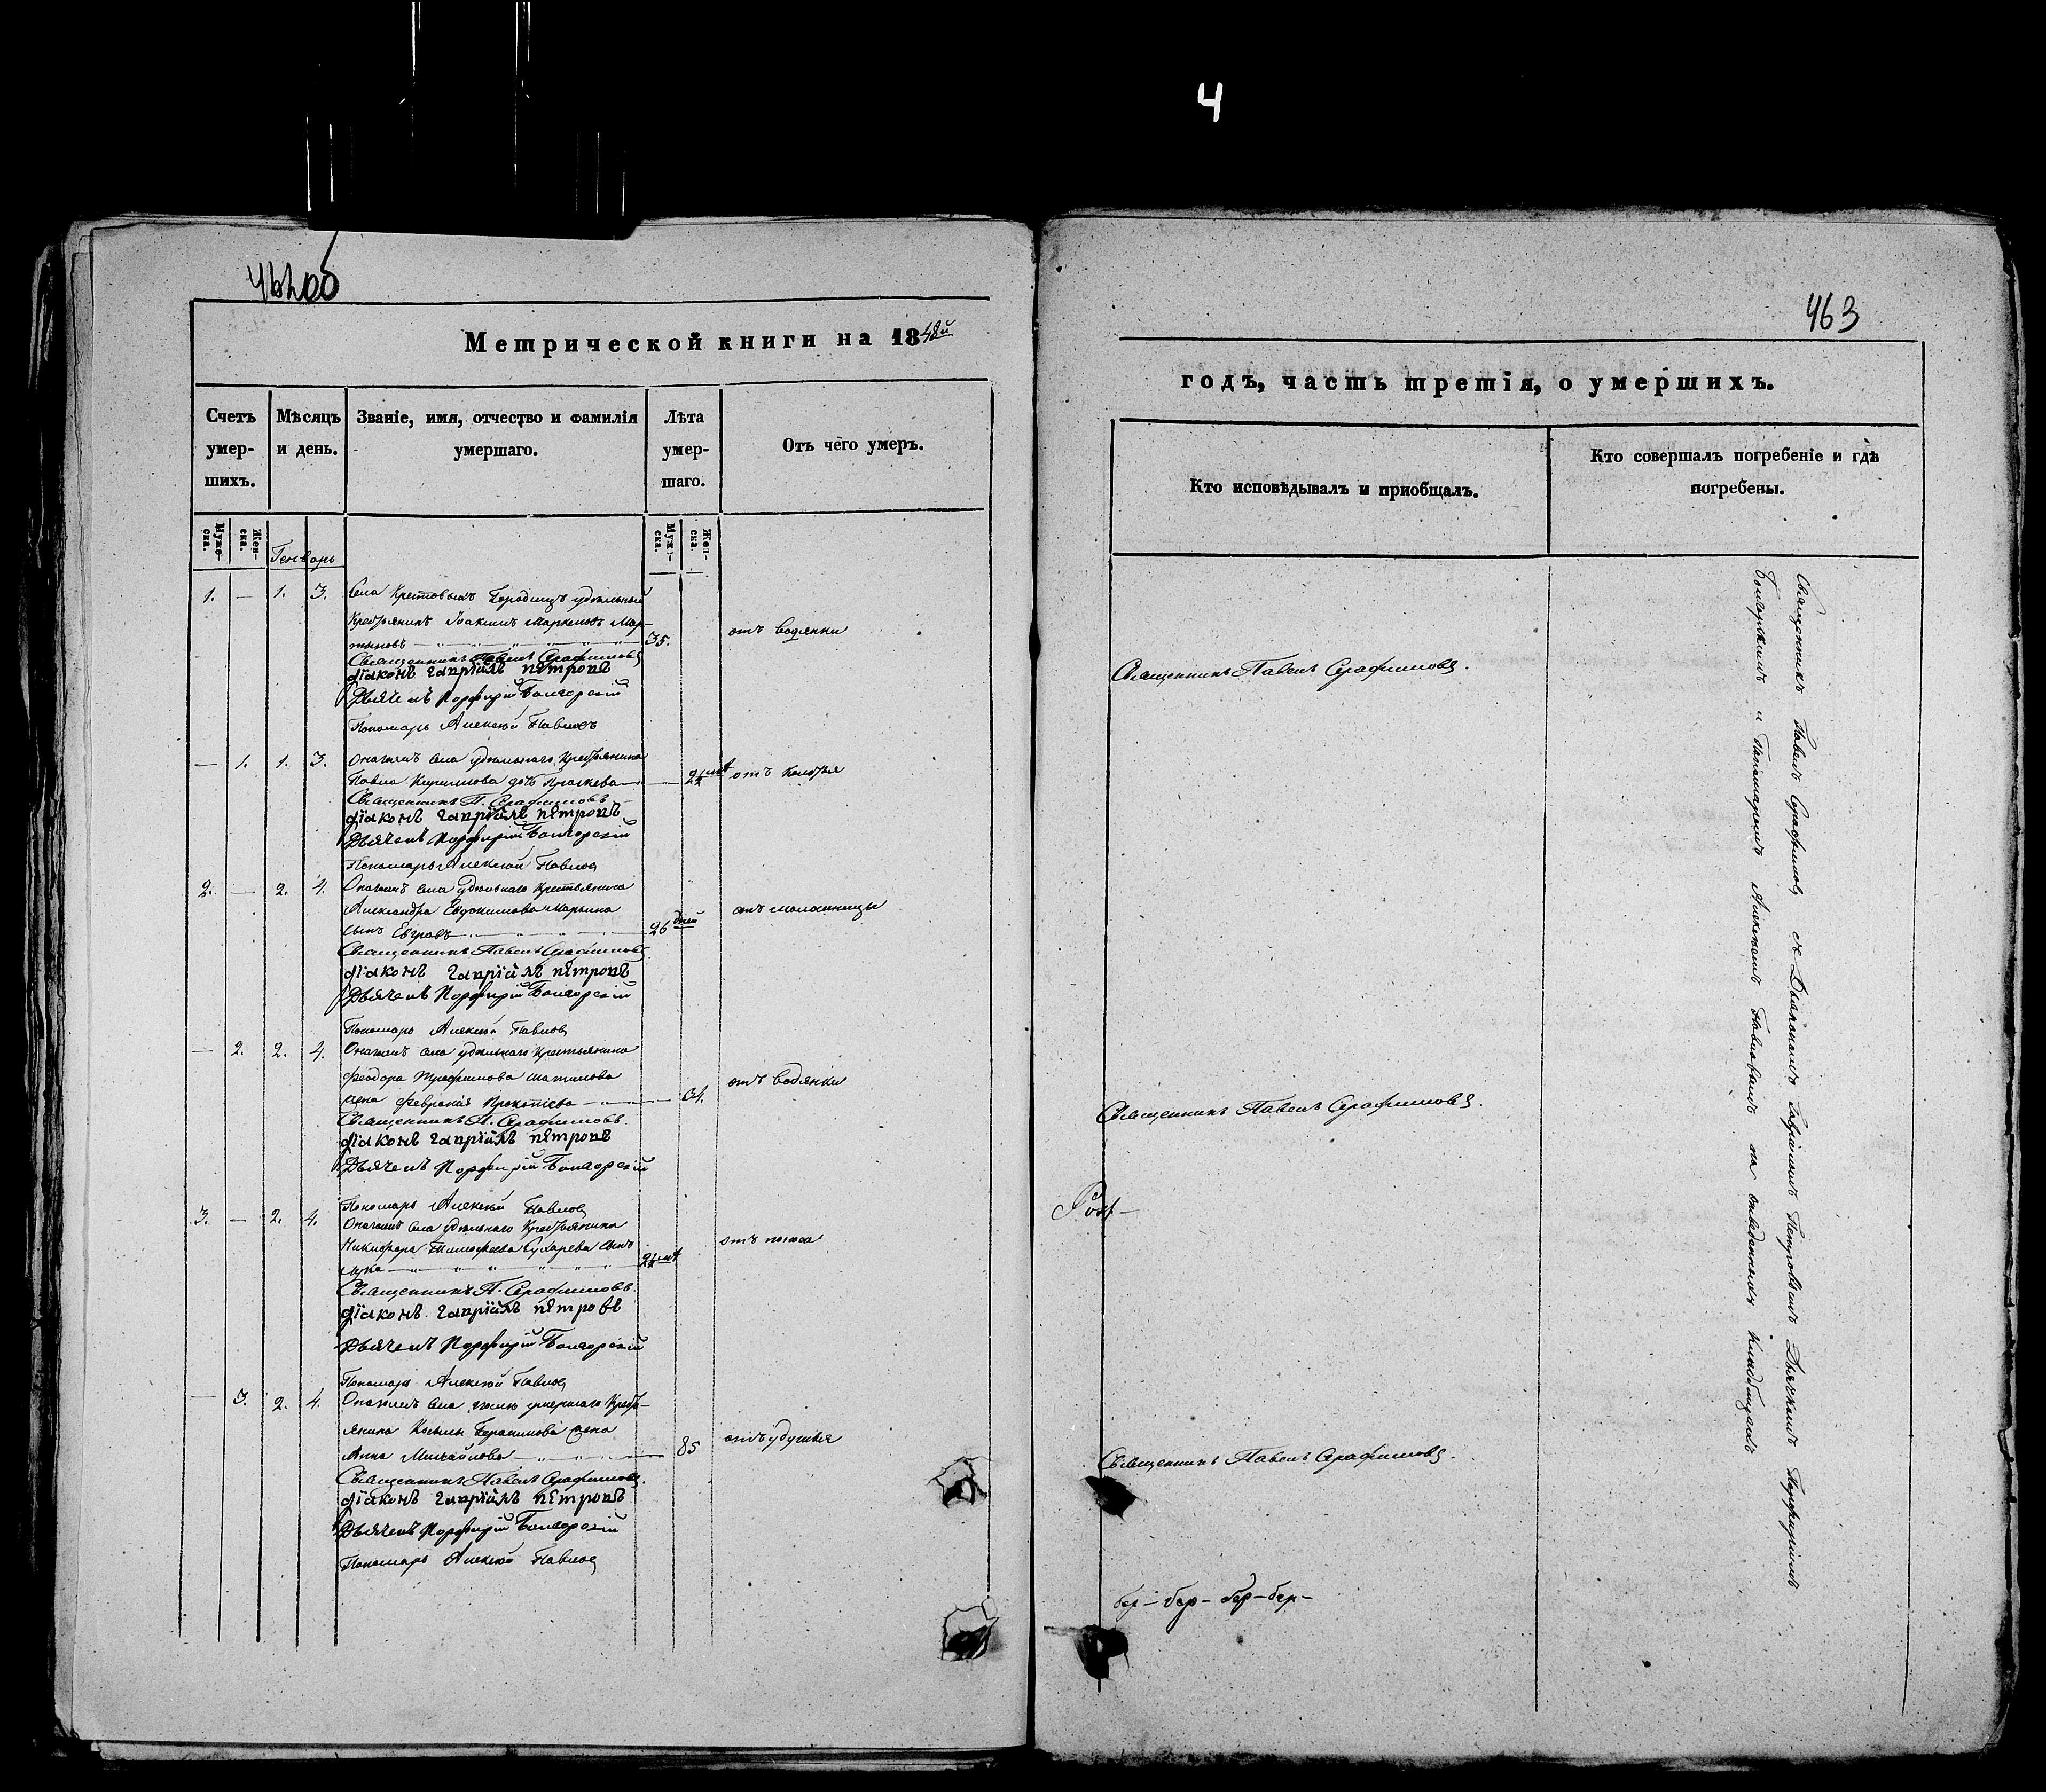 4
462об
463
Метрической книги на 1848й
годъ, часть третія, о умершихъ.
Счетъ умер- шихъ.
Мѣсяцъ и день.
Званіе, имя, отчество и фамилія умершаго.
Лѣта умер- шаго.
Отъ чего умеръ.
Кто исповѣдывалъ и приобщалъ.
Кто совершалъ погребеніе и гдѣ погребены.
Муже- ска.
Жен- ска.
Муж- ска.
Жен- ска.
Генварь
1. — 1. 3. Села Крестовыхъ Городищъ удѣльный
Крестьянинъ Іоакимъ Маркеловъ Мар-
тыновъ 35. отъ водянки
Священникъ Павелъ Серафимовъ
діаконъ гавріилъ петровъ
Дьячекъ Порфирій Болгорскій
Пономарь Алексѣй Павловъ
Священникъ Павелъ Серафимовъ.
— 1. 1. 3. Оначинъ села удѣльнаго Крестьянина
Павла Кириллова дочь Праскева — отъ колотья
Священникъ П. Серафимовъ
діаконъ гавріилъ петровъ
Дьячекъ Порфирій Болгорскій
Пономарь Алексѣй Павловъ
2. — 2. 4. села удѣльнаго Крестьянина
Александра Евдокимова Марьина
сынъ Евграфъ 26 дней отъ молошницы
Священникъ Павелъ Серафимовъ.
діаконъ гавріилъ петровъ
Дьячекъ Порфирій Болгорскій
Пономарь Алексѣй Павловъ
— 2. 2. 4. села удѣльнаго Крестьянина
Феодора Трофимова
жена Феврония Прокопіева — отъ водянки
Священникъ П. Серафимовъ.
діаконъ гавріилъ петровъ
Дьячекъ Порфирій Болгорскій
Пономарь Алексѣй Павловъ
Священникъ Павелъ Серафимовъ.
3. — 2. 4. села удѣльнаго Крестьянина
Никифора Тимофеева Сухарева сынъ
Лука отъ поноса
Священникъ П. Серафимовъ.
діаконъ гавріилъ петровъ
Дьячекъ Порфирій Болгорскій
Пономарь Алексѣй Павловъ
— 3. 2. 4. села умершаго Кресть-
янина Козьмы Герасимова жена
Анна Михайлова — 85 отъ удушья
Священникъ Павелъ Серафимовъ.
діаконъ гавріилъ петровъ
Дьячекъ Порфирій Болгорскій
Пономарь Алексѣй Павловъ
Священникъ Павелъ Серафимовъ.
бер — бер — бер — бер —
Священникъ Павелъ Серафимовъ съ Дьякономъ Гавріиломъ Петровымъ Дьячкомъ Порфиріемъ
Болгорскимъ и Пономаремъ Алексѣемъ Павловымъ на отведенномъ кладбищѣ